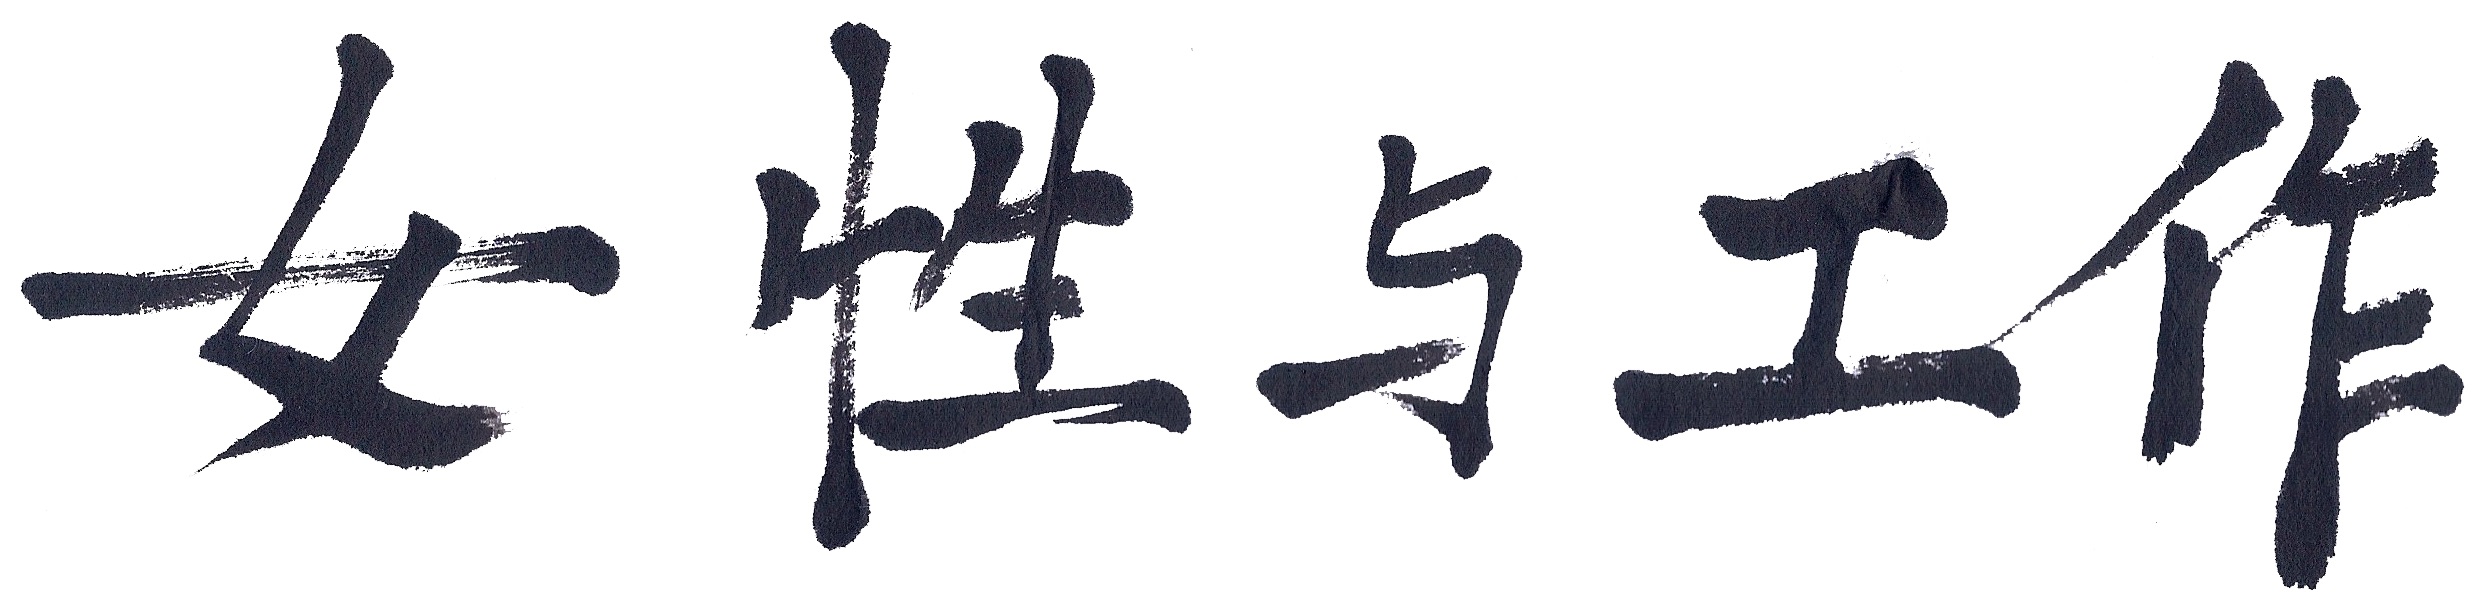 女性与工作